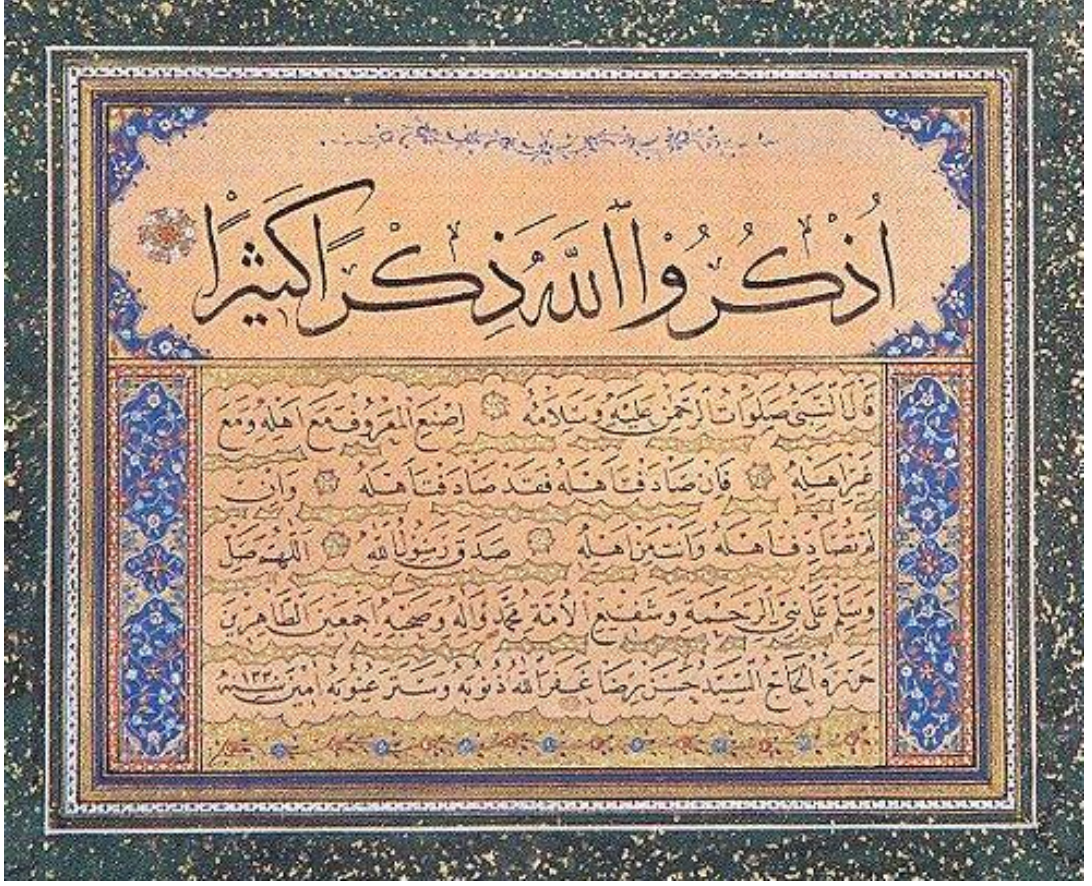 اُذْكُرُوْا اللّٰهَ ذِكْرًا كَثِيْرًا
قَالَ النَّبِيُّ صَلَوَاتُ الرَّحْمٰنِ عَلَيْهِ وَسَلَامُهُ اِصْنَعِ الْمَعْرُوفَ مَعَ اَهْلِهِ وَمَعَ
غَيْرِ اَهْلِهِ فَاِنْ صَادَفْتَ اَهْلَهُ فَقَدْ صَادَفْتَ اَهْلَهُ وَاِنْ
لَمْ تُصَادِفْ اَهْلَهُ وَاَنْتَ مِنْ اَهْلِهِ صَدَقَ رَسُولُ اللّٰهِ اَللّٰهُمَّ صَلِّ
وَسَلِّمْ عَلَى نَبِيِّ الرَّحْمَةِ وَشَفِيعِ الْاُمَّةِ مُحَمَّدٍ وَاٰلِهِ وَصَحْبِهِ اَجْمَعِينَ الطَّاهِرِينَ
حَرَّرَهُ الْحَاجُّ السَّيِّدُ حَسَنْ رِضَا غَفَرَ اللّٰهُ ذُنُوبَهُ وَسَتَرَ عُيُوبَهُ اٰمِينَ سنة ١٣٣٠